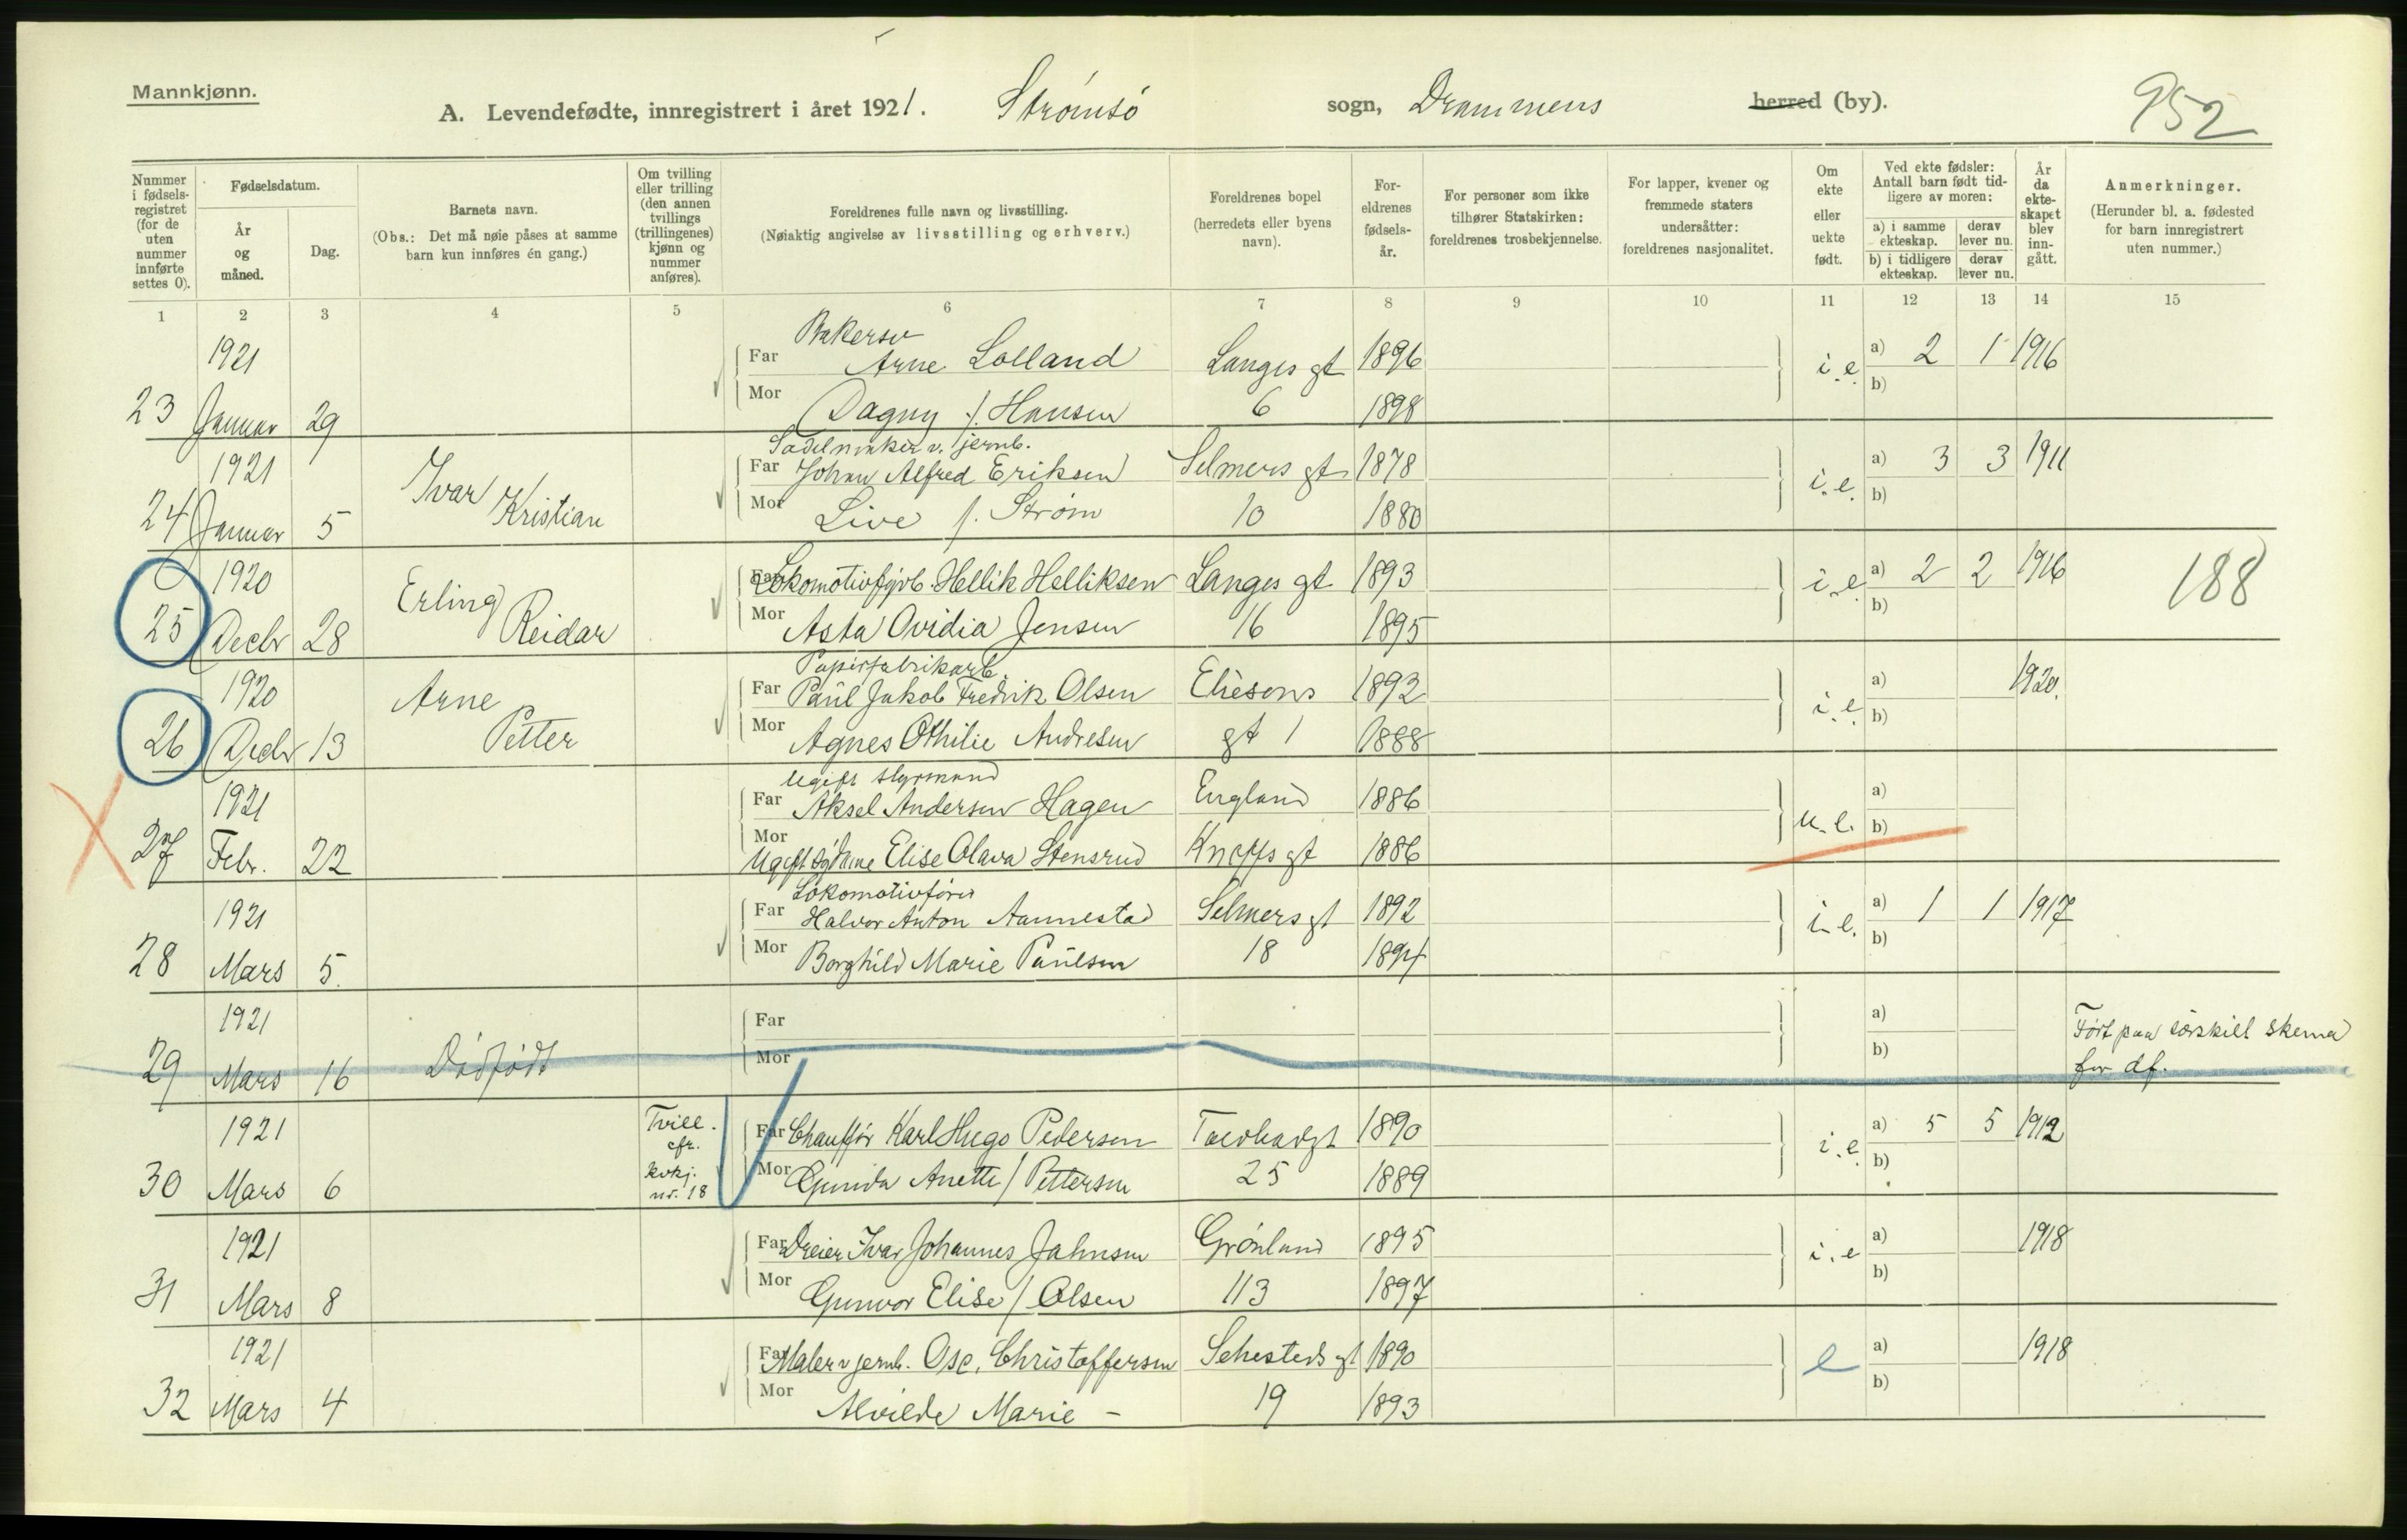 Mannkjønn.
A. Levendefødte, innregistrert i året 1921. Strömsö sogn, Drammens herred (by).
952
Nummer i fødsels-registret (for de uten nummer innførte settes 0).
Fødselsdatum.
År og måned.
Dag.
Barnets navn.
(Obs.: Det må nøie påses at samme barn kun innføres én gang.)
Om tvilling eller trilling (den annen tvillings (trillingenes) kjønn og nummer anføres).
Foreldrenes fulle navn og livsstilling.
(Nøiaktig angivelse av livsstilling og erhverv.)
Foreldrenes bopel (herredets eller byens navn).
For-eldrenes fødsels-år.
For personer som ikke tilhører Statskirken: foreldrenes trosbekjennelse.
For lapper, kvener og fremmede staters undersåtter: foreldrenes nasjonalitet.
Om ekte eller uekte født.
Ved ekte fødsler: Antall barn født tid-ligere av moren:
a) i samme ekteskap. derav lever nu.
b) i tidligere ekteskap. derav lever nu.
År da ekte-skapet blev inn-gått.
Anmerkninger.
(Herunder bl. a. fødested for barn innregistrert uten nummer.)
1 2 3 4 5 6 7 8 9 10 11 12 13 14 15
Bakersv
1921 Far Arne Lolland Langes gt 1896 i.e. a) 2 1 1916
23 Januar 29 Mor Dagny f. Hansen 6 1898 b)
Sadelmaker v. jernb.
1921 Ivar Far Johan Alfred Eriksen Selmers gt 1878 i.e. a) 3 3 1911
24 Januar 5 Kristian Mor Live f. Strøm 10 1880 b)
1920 Erling Far Lokomotivfyrb. Hellik Helliksen Langes gt 1893 i.e. a) 2 2 1916 188
25 Decbr 28 Reidar Mor Asta Ovidia Jensen 16 1895 b)
Papirfabrikarb.
1920 Arne Far Paul Jakob Fredrik Olsen Eliesons 1892 i.e. a) 1920.
26 Decbr 13 Petter Mor Agnes Othilie Andresen gt 1 1888 b)
Ugift styrmand
1921 Far Aksel Andersen Hagen England 1886 u.e. a)
27 Febr. 22 Mor Ugift Elise Olava Stensrud Knoffs gt 1886 b)
Lokomotivförer
1921 Far Halvor Anton Aannestad Selmers gt 1892 i.e. a) 1 1 1917
28 Mars 5. Mor Borghild Marie Paulsen 18 1894 b)
1921 Far a) Fört paa særskilt skema
29 Mars 16 Dödfödt Mor b) for df.
1921 Tvill. cfr. Far Chaufför Karl Hugo Pedersen 1890 i.e. a) 5 5 1912
30 Mars 6 kvkj. nr. 18 Mor Gunda Anette / Pettersen 25 1889 b)
1921 Far Dreier Ivar Johannes Jahnsen Grönland 1895 i.e a) 1918
31 Mars 8 Mor Gunvor Elise / Olsen 113 1897 b)
1921 Far Maler v jernb. Osc. Christoffersen Sehesteds gt 1890 e a) 1918
32 Mars 4 Mor Alvilde Marie - 19 1893 b)